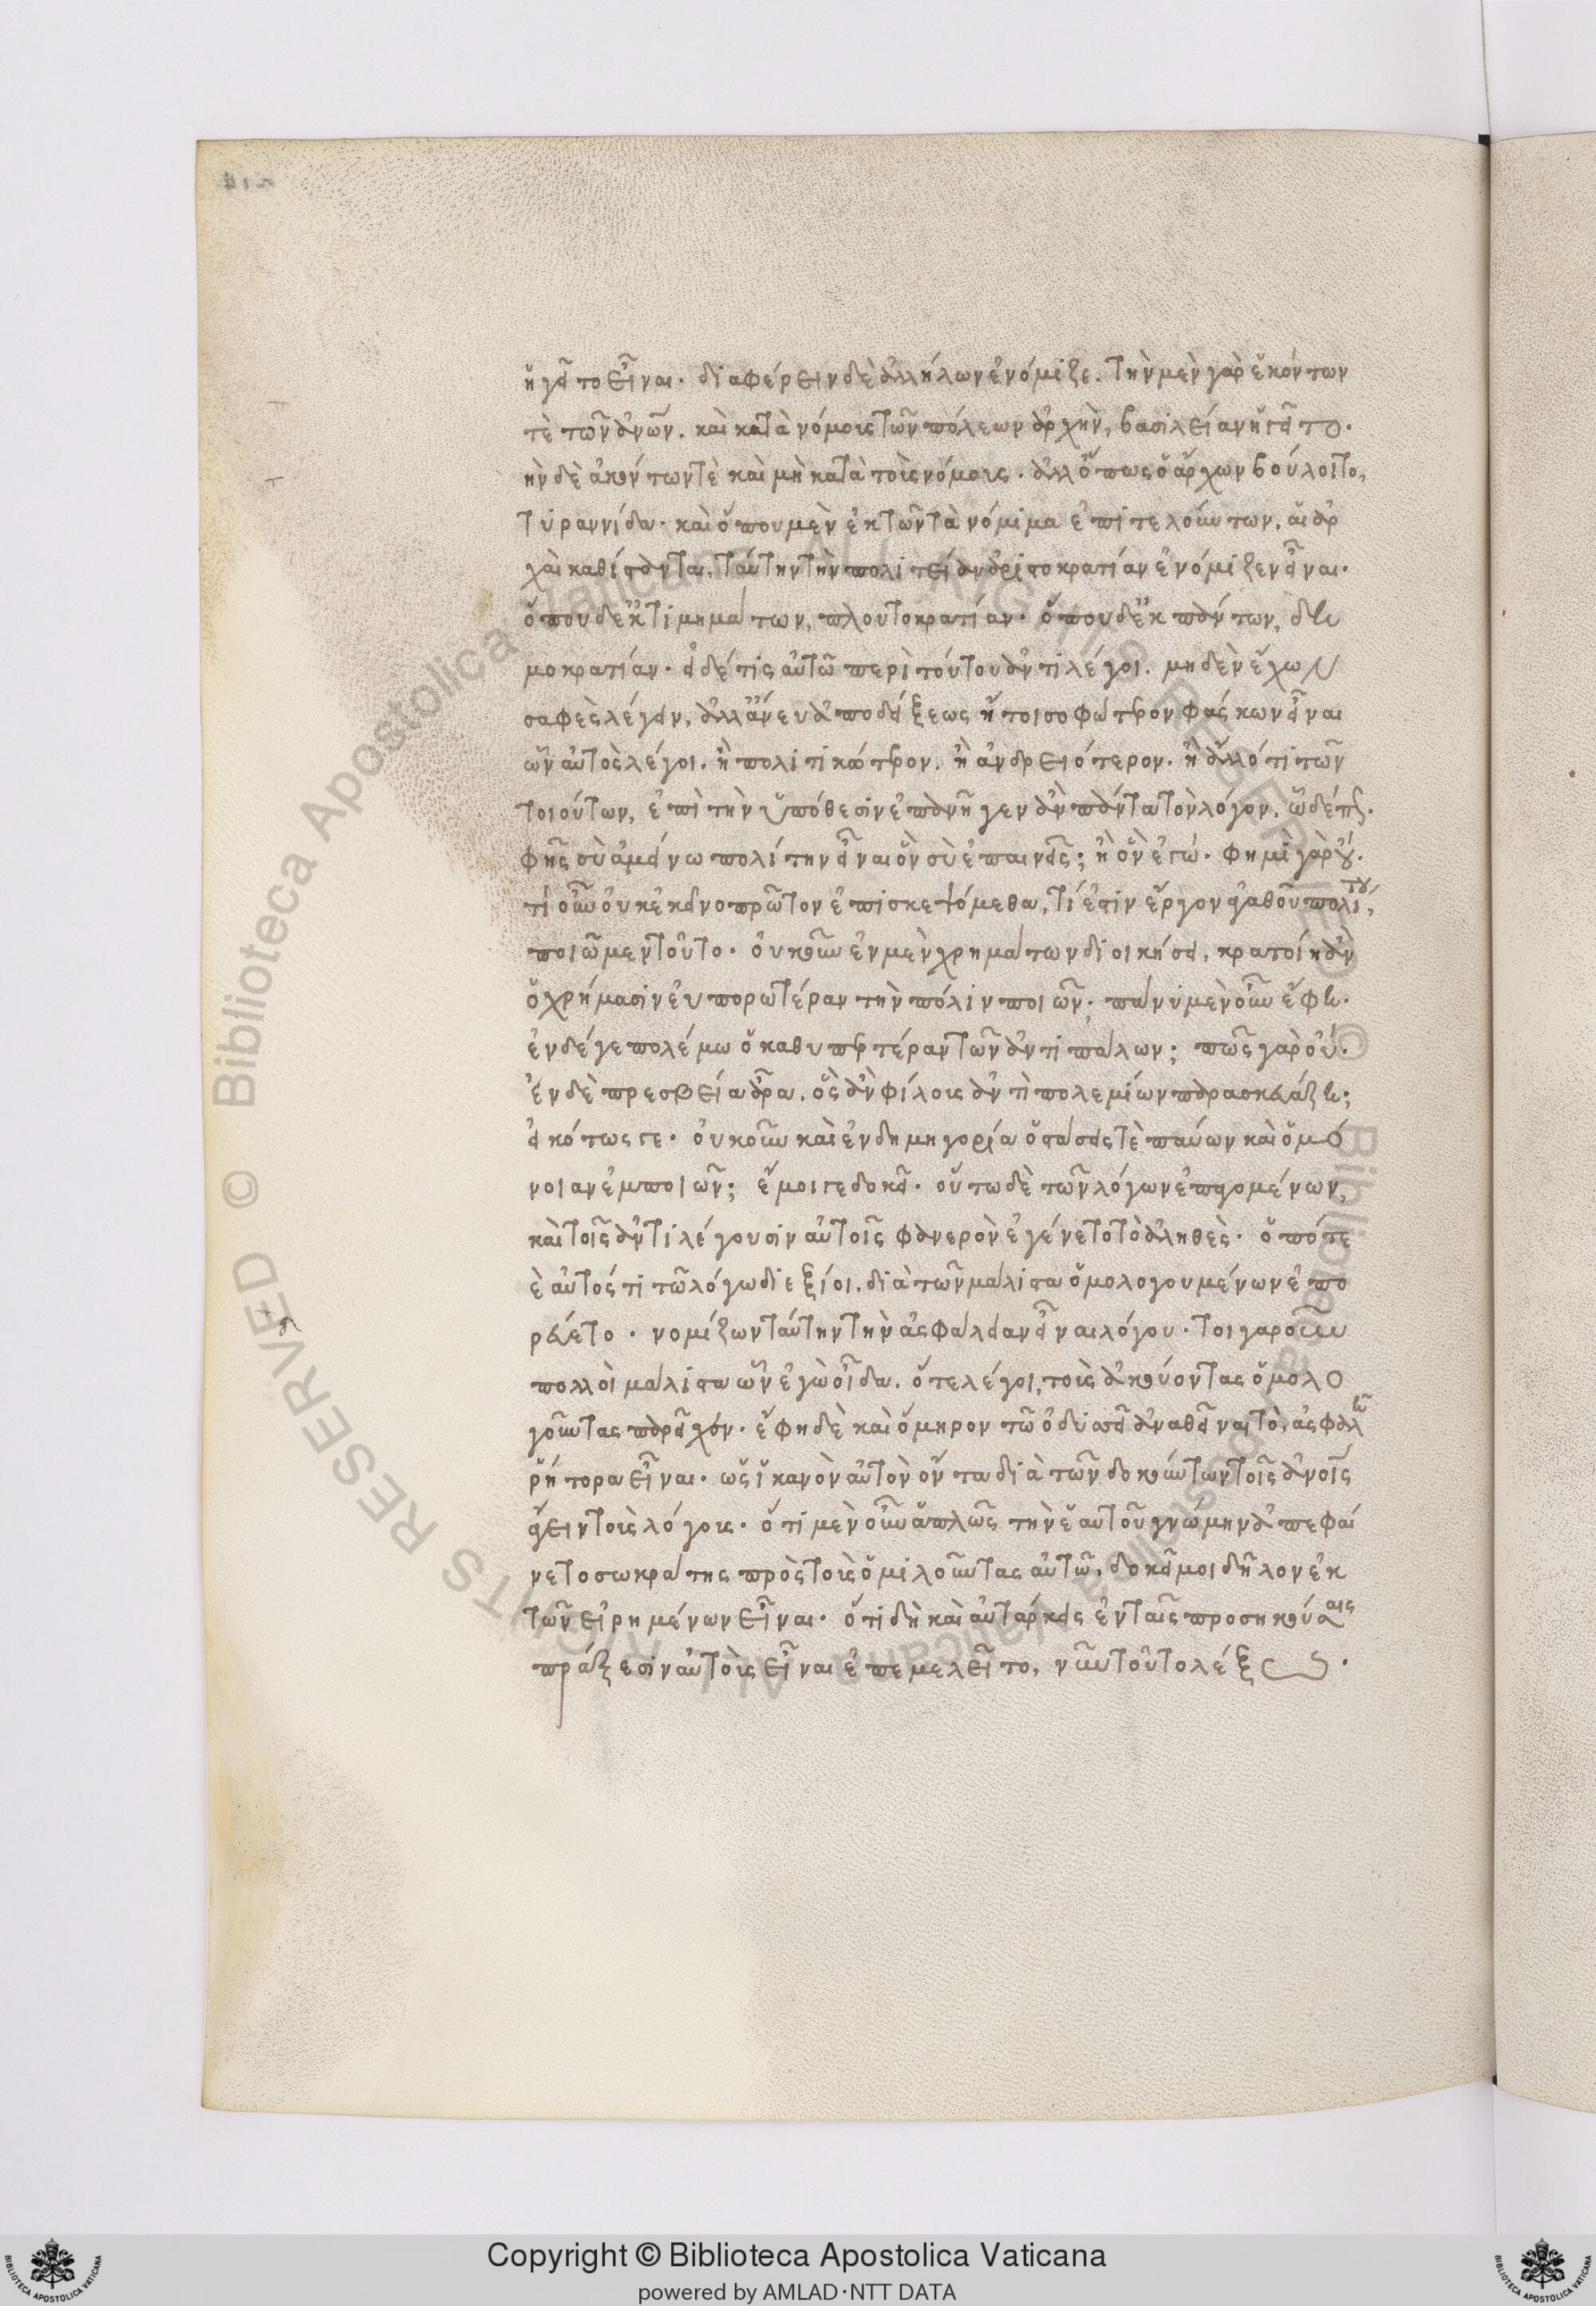 ἡγεῖτο εἶναι· διαφέρειν δὲ ἀλλήλων ἐνόμιζε. τὴν μὲν γὰρ ἑκόντων
τὲ τῶν ἀνῶν. καὶ κατὰ νόμους τῶν πόλεων ἀρχὴν, βασιλείαν ἡγεῖτο·
ὴν δὲ ἀκόντων τὲ καὶ μὴ κατὰ τοὺς νόμους· ἀλλ' ὅπως ὁ ἄρχων βούλοιτο,
τυραννίδα· καὶ ὅπου μὲν ἐκ τῶν τὰ νόμιμα ἐπιτελούντων, αἱ ἀρ
χαὶ καθίστανται, ταύτην τὴν πολιτείαν ἀριστοκρατίαν ἐνόμιζεν εἶναι·
ὅπου δ' ἐκ τιμημάτων, πλουτοκρατίαν· ὅπου δ' ἐκ πάντων, δη
μοκρατίαν· εἰ δέ τις αὐτῶ περὶ τούτου ἀντιλέγοι. μηδὲν ἔχων
σαφὲς λέγειν, ἀλλ' ἄνευ ἀποδείξεως ἤτοι σοφώτερον φάσκων εἶναι
ὧν αὐτὸς λέγοι. ἢ πολιτικώτερον. ἢ ἀνδρειότερον. ἢ ἄλλό τι τῶν
τοιούτων, ἐπὶ τὴν ὑπόθεσιν ἐπανῆγεν ἂν πάντα τὸν λόγον. ὧδέ π.
φῂς σὺ ἀμείνω πολίτην εἶναι ὃν σὺ ἐπαινεῖς; ἢ ὃν ἐγώ· φημὶ γὰρ οὖ.
τί οὖν οὐκ ἐκεῖνο πρῶτον ἐπισκεψόμεθα, τί ἐστὶν ἔργον ἀγαθοῦ πολίτου,
ποιῶμεν τοῦτο· οὐκοῦν ἐν μὲν χρημάτων διοικήσει, κρατοίη ἂν
ὁ χρήμασιν εὐπορωτέραν τὴν πόλιν ποιῶν; πάνυ μὲν οὖν ἔφη·
ἐν δέ γε πολέμω ὁ καθυπερτέραν τῶν ἀντιπάλων; πῶς γὰρ οὔ·
ἐν δὲ πρεσβεία ἆρα. ὃς ἂν φίλους ἀντὶ πολεμίων παρασκευάζη;
εἰκότως γε· οὐκοῦν καὶ ἐν δημηγορία ὁ στάσεις τὲ παύων καὶ ὁμό
νοιαν ἐμποιῶν; ἔμοιγε δοκεῖ· οὕτω δὲ τῶν λόγων ἐπαγομένων,
καὶ τοῖς ἀντιλέγουσιν αὐτοῖς φανερὸν ἐγένετο τὸ ἀληθὲς· ὁπότε
ὲ αὐτός τι τῶ λόγω διεξίοι. διὰ τῶν μάλιστα ὁμολογουμένων ἐπο
ρεύετο· νομίζων ταύτην τὴν ἀσφάλειαν εἶναι λόγου· τοιγαροῦν
πολλοὶ μάλιστα ὧν ἐγὼ οἶδα. ὅτε λέγοι, τοὺς ἀκούοντας ὁμολο
γοῦντας παρεῖχεν· ἔφη δὲ καὶ ὅμηρον τῶ ὀδυσσεῖ ἀναθεῖναι τὸ, ἀσφαλῆ
ῥήτορα εἶναι· ὡς ἱκανὸν αὐτὸν ὄντα διὰ τῶν δοκούντων τοῖς ἀνοις
ἄγειν τοὺς λόγους· ὅτι μὲν οὖν ἁπλῶς τὴν ἑαυτοῦ γνώμην ἀπεφαί
νετο σωκράτης πρὸς τοὺς ὁμιλοῦντας αὐτῶ, δοκεῖ μοι δῆλον ἐκ
τῶν εἰρημένων εἶναι· ὅτι δὴ καὶ αὐτάρκεις ἐν ταῖς προσηκούσαις
πράξεσιν αὐτοὺς εἶναι ἐπεμελεῖτο, νῦν τοῦτο λέξω·
Copyright © Biblioteca Apostolica Vaticana
powered by AMLAD·NTT DATA